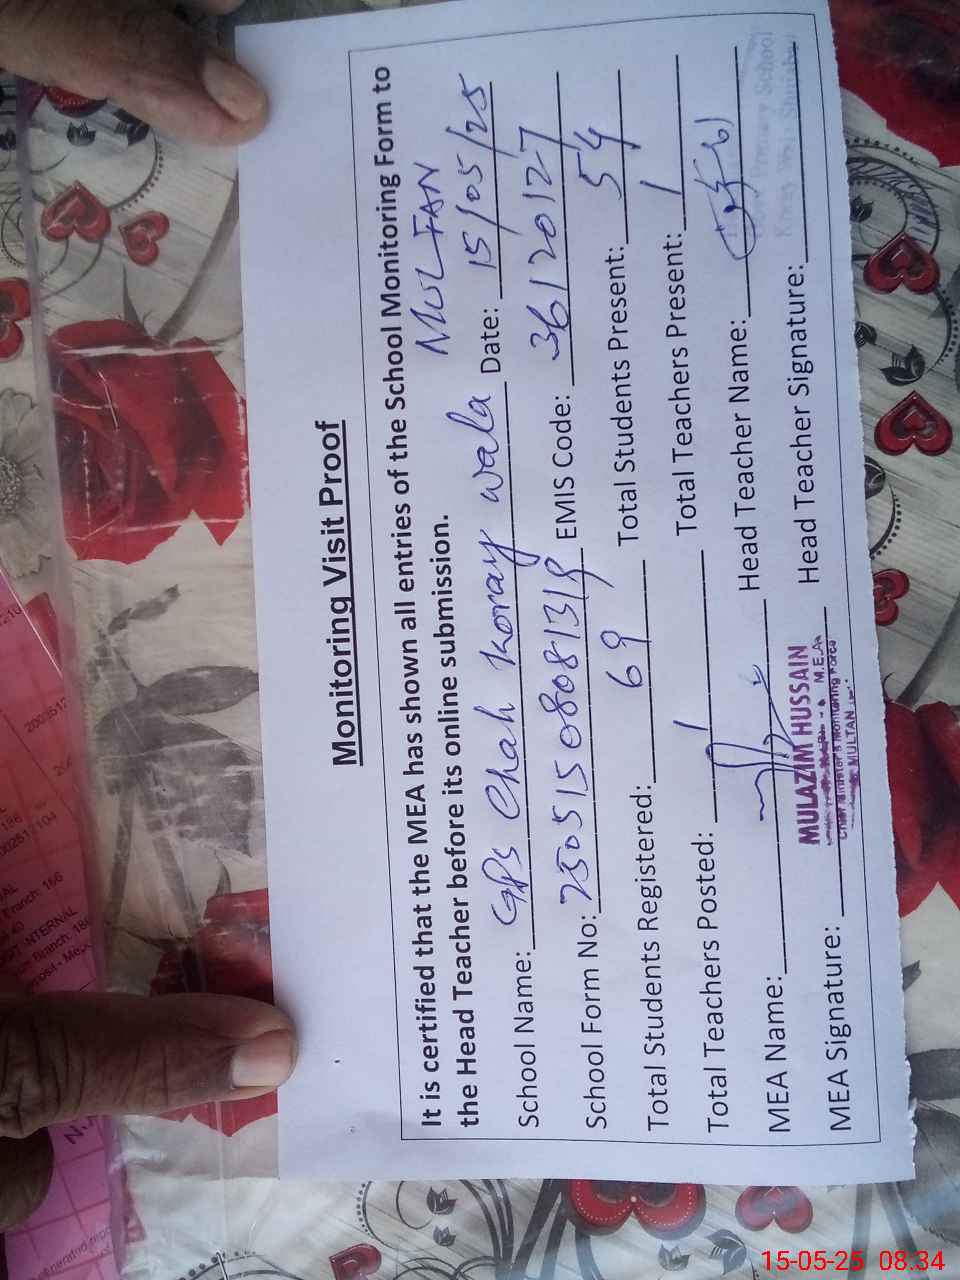 Monitoring Visit Proof
It is certified that the MEA has shown all entries of the School Monitoring Form to
the Head Teacher before its online submission.
MULTAN
School Name: GPS Chah Koray wala Date: 15/05/25
School Form No: 25051508081319 EMIS Code: 36120127
Total Students Registered: 69 Total Students Present: 54
Total Teachers Posted: 1 Total Teachers Present: 1
MEA Name: Head Teacher Name:
MULAZIM HUSSAIN
M.E.A
Chief Minister's Monitoring Force
MULTAN
MEA Signature: Head Teacher Signature:
Primary School
15-05-25 08:34